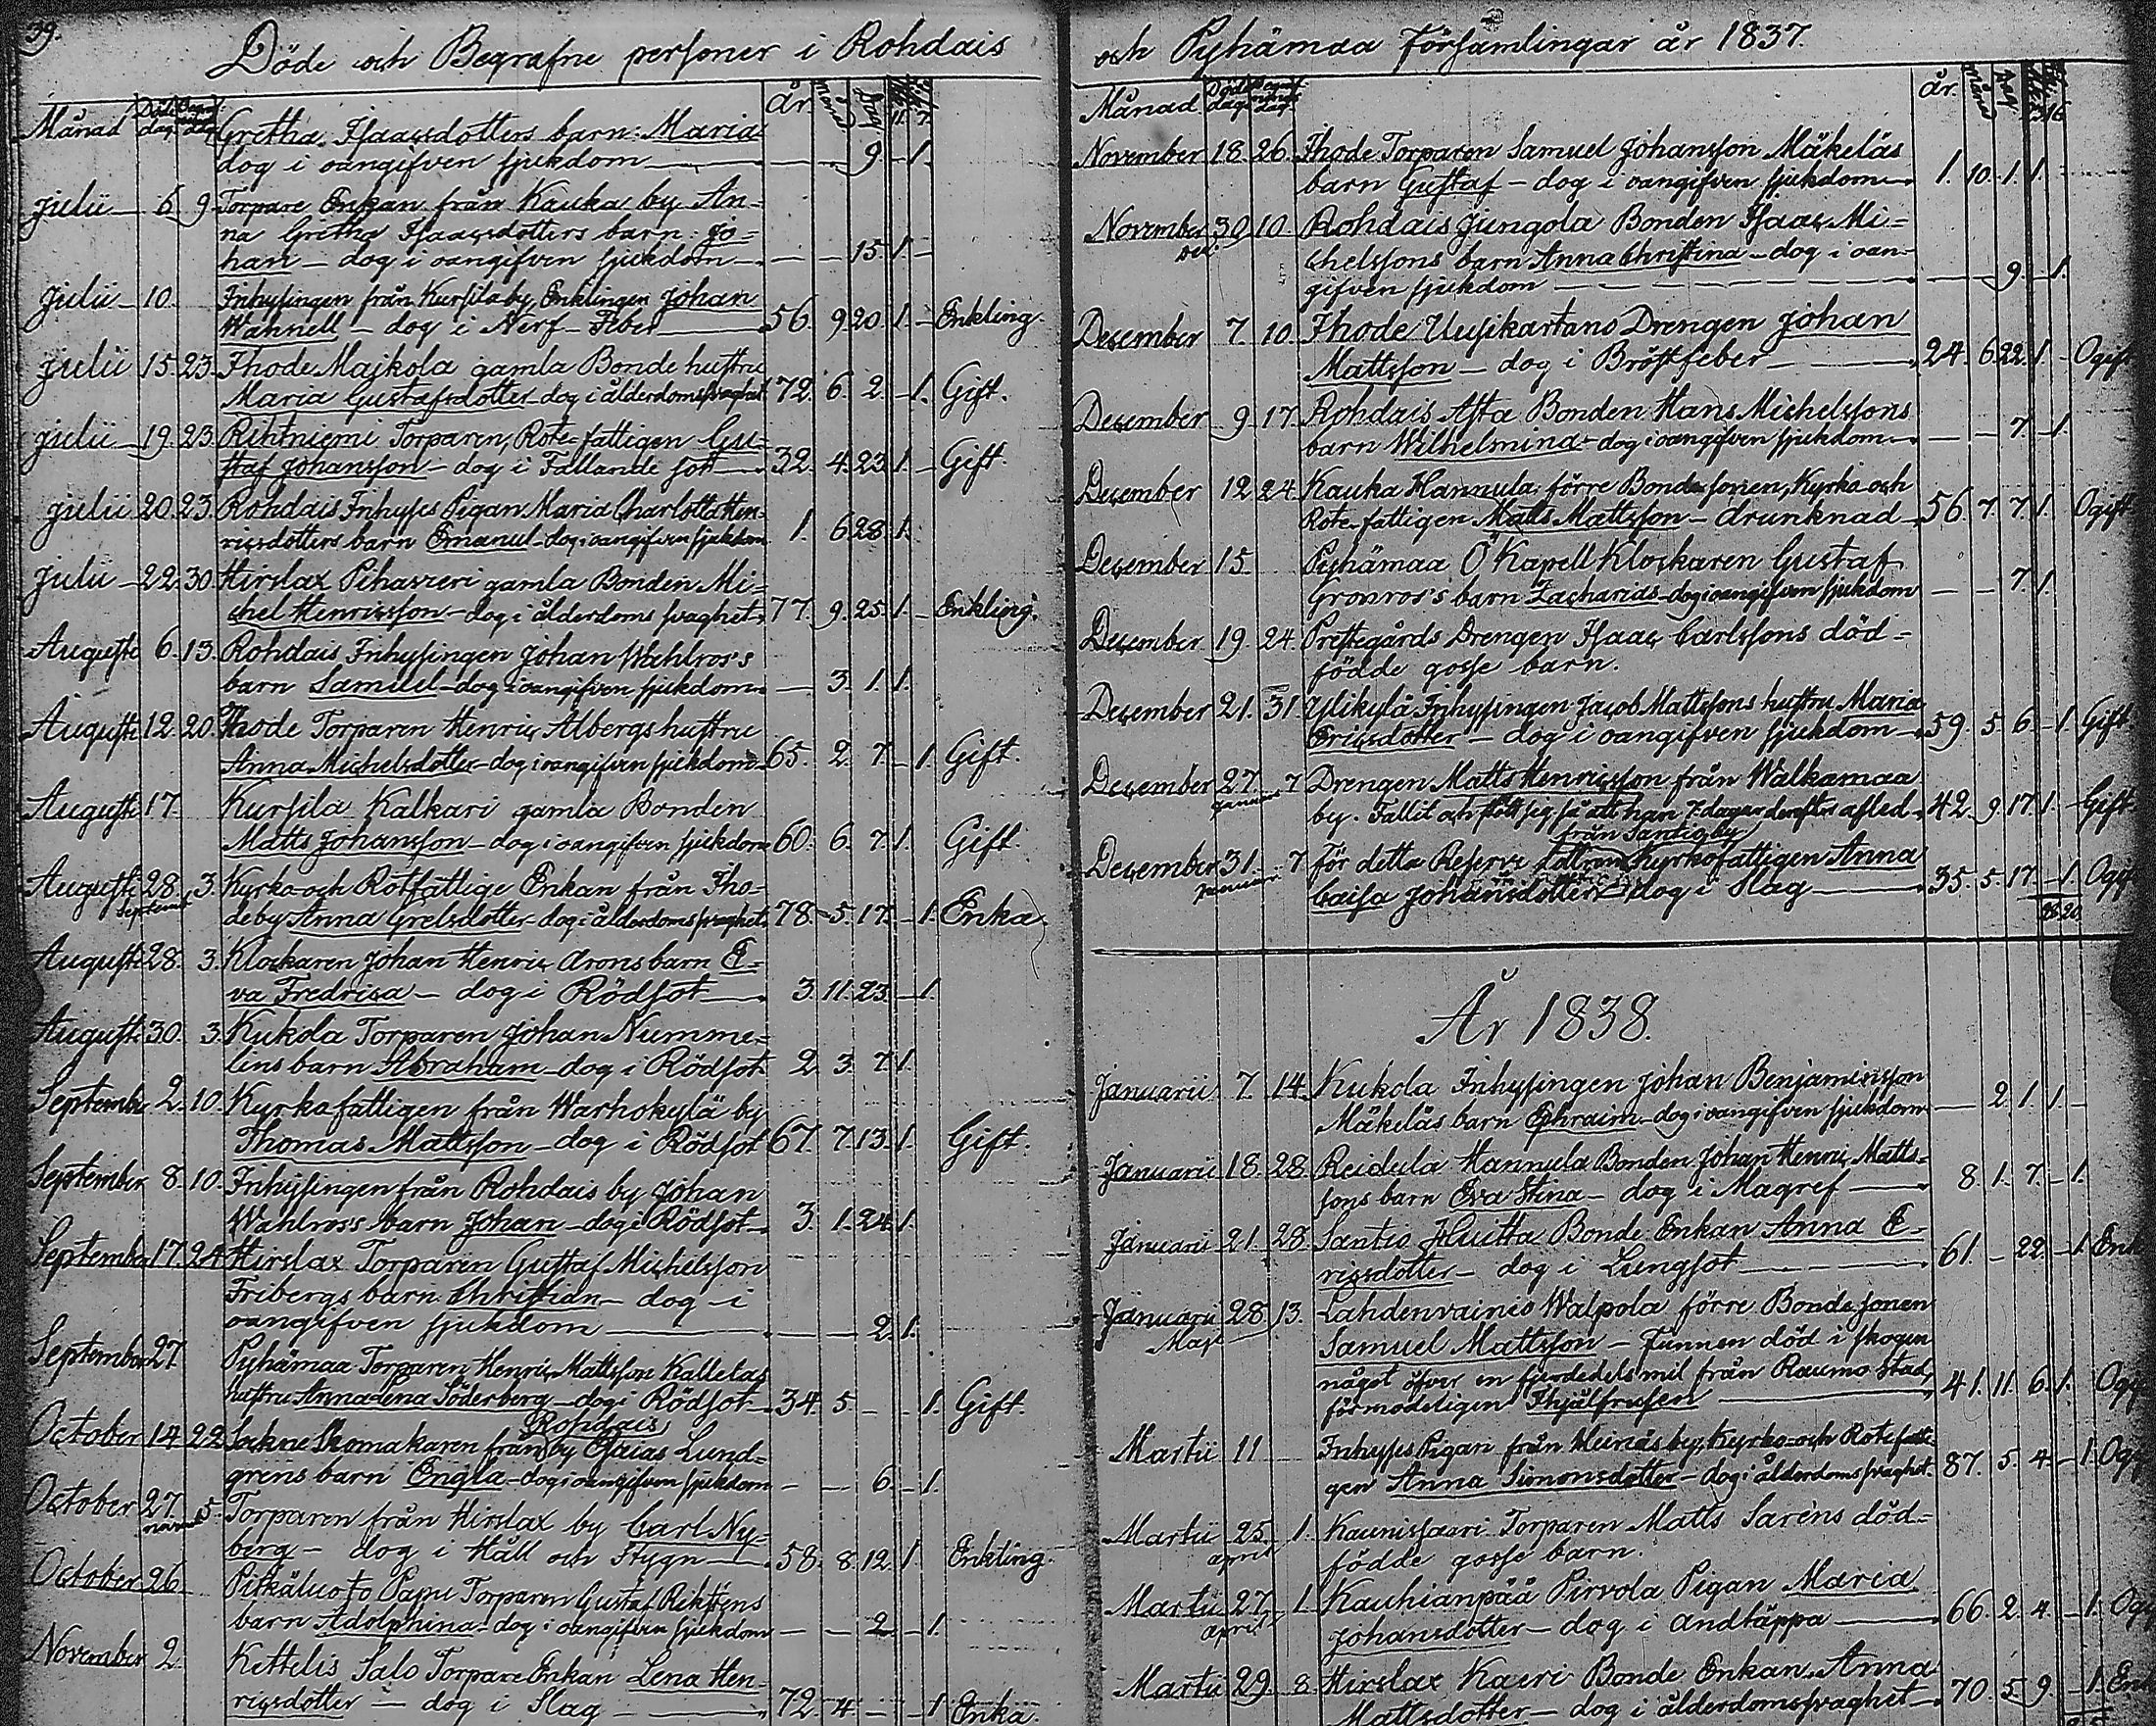 39.
Döde och Begrafne personer i Rohdais
Månad Död dag. Begraf dag år. Månad Dag
Gretha Isaacsdotters barn: Maria
dog i oangifven sjukdom — — — 9 — 1.
Julii 6 9 Torpare Enkan från Kauka by An=
na Gretha Isaacsdotters barn: Jo=
han — dog i oangifven sjukdom — — — 15. 1. —
Julii 10. Inhysingen från Kursila by, Enklingen Johan
Wannell — dog i Nerf-Feber 56. 9 20 1. — Enkling.
Julii 15 23 Ihode Majkola gamla Bonde hustru
Maria Gustafsdotter — dog i ålderdomssvaghet 72. 6. 2. — 1. Gift.
Julii 19. 23. Rihtniemi Torparen, Rote-fattigen Gu=
staf Johansson — dog i Fallande sot 32. 4. 23. 1. — Gift.
Julii 20. 23. Rohdais Inhyses Pigan Maria Charlotta Hen=
ricsdotters barn Emanuel — dog i oangifven sjukdom 1. 6 28. 1.
Julii 22. 30. Hirslax Pihavieri gamla Bonden Mi=
chel Henricsson — dog i ålderdoms svaghet 77. 9. 25. 1. — Enkling.
Augusti 6. 13. Rohdais Inhysingen Johan Wahlros's
barn Samuel — dog i oangifven sjukdom — 3. 1. 1.
Augusti 12. 20. Ihode Torparen Henric Albergs hustru
Anna Michelsdotter — dog i oangifven sjukdom 65. 2. 7. — 1. Gift.
Augusti 17. Kursila Kalkari gamla Bonden
Matts Johansson — dog i oangifven sjukdom 60. 6. 7. 1. Gift.
Augusti 28. Septemb. 3. Kyrko och Rotfattige Enkan från Iho=
de by Anna Grelsdotter — dog i ålderdomssvaghet 78. 5. 17. — 1. Enka.
Augusti 28. 3. Klockaren Johan Henric Arons barn E=
va Fredrica — dog i Rödsot 3. 11. 23. — 1.
Augusti 30. 3. Kukola Torparen Johan Numme=
lins barn Abraham — dog i Rödsot 2. 3. 7. 1.
September 2. 10. Kyrkofattigen från Warhokylä by
Thomas Mattsson — dog i Rödsot 67. 7. 13. 1. Gift.
September 8. 10. Inhysingen från Rohdais by Johan
Wahlross barn Johan — dog i Rödsot 3. 1. 24. 1.
September 17. 24. Hirslax Torparen Gustaf Michelsson
Fribergs barn Christian — dog i
oangifven sjukdom — — 2. 1.
September 27. Pyhämaa Torparen Henric Mattsson Kalletas
hustru Anna Lena Söderberg — dog i Rödsot 34. 5. — — 1. Gift.
Rohdais
October 14. 22. Sockne Skomakaren från by Esaias Lund=
grens barn Engla — dog i oangifven sjukdom — — 6. — 1.
October 27. 5. Torparen från Hirslax by Carl Ny=
berg — dog i Håll och Stygn 58. 8. 12. 1. Enkling.
October 26. Pitkäluoto Papu Torparen Gustaf
barn Adolphina — dog i oangifven sjukdom — — 2 — 1.
November 2. Kettelis Salo Torpare Enkan Lena Hen=
ricsdotter — dog i Slag 72. 4. — — 1 Enka.
och Pyhämaa Församlingar år 1837.
Månad Död dag Begraf dag. år. Månad Dag
November 18 26. Ihode Torparen Samuel Johansson Mäkeläs
barn Gustaf — dog i oangifven sjukdom 1. 10. 1. 1.
November 30 10 Rohdais Jungola Bonden Isaac Mi=
chelssons barn Anna Christina — dog i oan=
gifven sjukdom — — 9 — 1.
December 7. 10. Ihode Uusikartano Drengen Johan
Mattsson — dog i Bröstfeber 24. 6 22. 1. Ogift
December 9 17. Rohdais Asta Bonden Hans Michelssons
barn Wilhelmina — dog i oangifven sjukdom — — 7. — 1.
December 12 24. Kauka Hannula förre Bondesonen, Kyrko och
Rote-fattigen Matts Mattsson — drunknad 56. 7. 7. 1. Ogift
December 15 Pyhämaa Ö Kapell Klockaren Gustaf
Gronros's barn Zacharias — dog i oangifven sjukdom — — 7. 1.
December 19. 24. Prestegårds Drengen Isaac Carlssons död=
födde gosse barn.
December 21. 31. Ylikylä Inhysingen Jacob Mattssons hustru Maria
Ericsdotter — dog i oangifven sjukdom 59. 5. 6. — 1. Gift
December 27. Januari 7 Drengen Matts Henricsson från Walkamaa
by. Fallit och stött sig så att han 7 dagar derefter afled 42. 9. 17. 1. Gift
från Santio by
December 31. Januari 7 för detta Reserve Kyrkofattigen Anna
Caisa Johansdotter dog i Slag 35. 5. 17. — 1. Ogift
28 20
År 1838.
Januarii 7. 14. Kukola Inhysingen Johan Benjaminsson
Mäkeläs barn Ephraim — dog i oangifven sjukdom — 2. 1. 1. —
Januarii 18. 28 Reidula Hannula Bonden Johan Henric Matts=
sons barn Eva Stina — dog i Magref 8. 1. 7. — 1.
Januarii 21. 28 Santio Huitta Bonde Enkan Anna E=
ricsdotter — dog i Lungsot 61. — 22 — 1. Enk
Januarii 28. Maji 13. Lahdenvainio Walpola förre Bonde sonen
Samuel Mattsson — Funnen död i skogen
något öfver en fjerdedels mil från Raumo Stad,
förmodeligen Ihjälfrusen 41. 11. 6. 1. Ogi
Martii 11 Inhyses Pigan från Heinäs by, Kyrko och Rotefatti=
gen Anna Simonsdotter — dog i ålderdomssvaghet. 87. 5. 4. — 1. Ogi
Martii 25. april 1. Kaunissaari Torparen Matts Saréns död=
födde gosse barn.
Martii 27. april 1. Kauhianpää Pirvola Pigan Maria
Johansdotter — dog i andtäppa 66. 2. 4. — 1. Ogi
Martii 29. 8. Hirslax Kaeri Bonde Enkan Anna
Mattsdotter — dog i ålderdomssvaghet 70. 5. 9. — 1. Enk